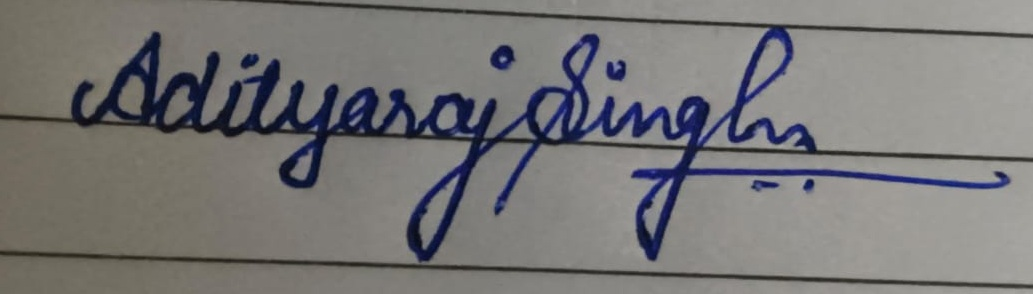 Adityaraj Singh